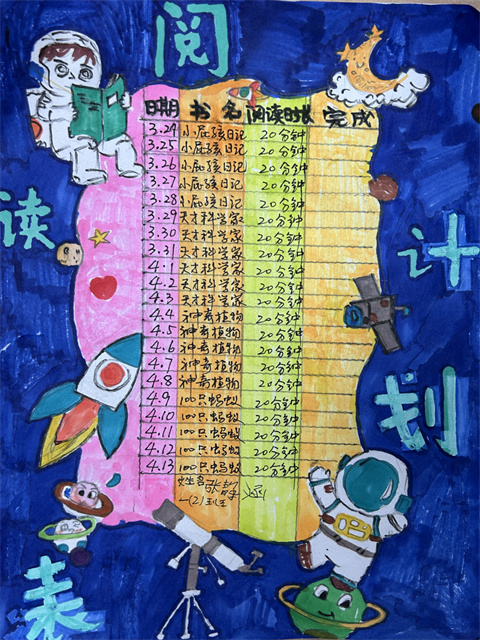 阅读计划表
日期 书名 阅读时长 完成
3.24 小屁孩日记 20分钟
3.25 小屁孩日记 20分钟
3.26 小屁孩日记 20分钟
3.27 小屁孩日记 20分钟
3.28 小屁孩日记 20分钟
3.29 天才科学家 20分钟
3.30 天才科学家 20分钟
3.31 天才科学家 20分钟
4.1 天才科学家 20分钟
4.2 天才科学家 20分钟
4.3 天才科学家 20分钟
4.4 神奇植物 20分钟
4.5 神奇植物 20分钟
4.6 神奇植物 20分钟
4.7 神奇植物 20分钟
4.8 神奇植物 20分钟
4.9 100只蚂蚁 20分钟
4.10 100只蚂蚁 20分钟
4.11 100只蚂蚁 20分钟
4.12 100只蚂蚁 20分钟
4.13 100只蚂蚁 20分钟
姓名 张静涵
一(2)班